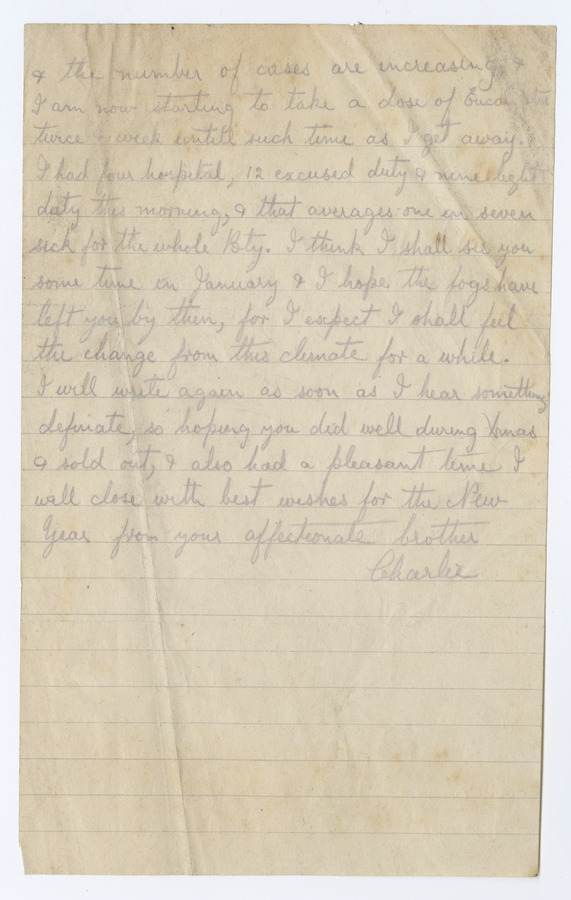 & the number of cases are increasing, &
I am now starting to take a dose of
twice a week untill such time as I get away.
I had four hospital, 12 excused duty & nine light
duty this morning, & that averages one in seven
sick for the whole Bty. I think I shall see you
some time in January & I hope the fogs have
left you by then, for I expect I shall feel
the change from this climate for a while.
I will write again as soon as I hear something
definate, so hoping you did well during Xmas
& sold out, & also had a pleasant time I
will close with best wishes for the New
Year from your affectionate brother
Charlie